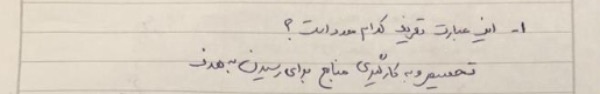 ۱- این عبارت تعریف کدام مورد است؟
تخصیص و به کارگیری منابع برای رسیدن به هدف